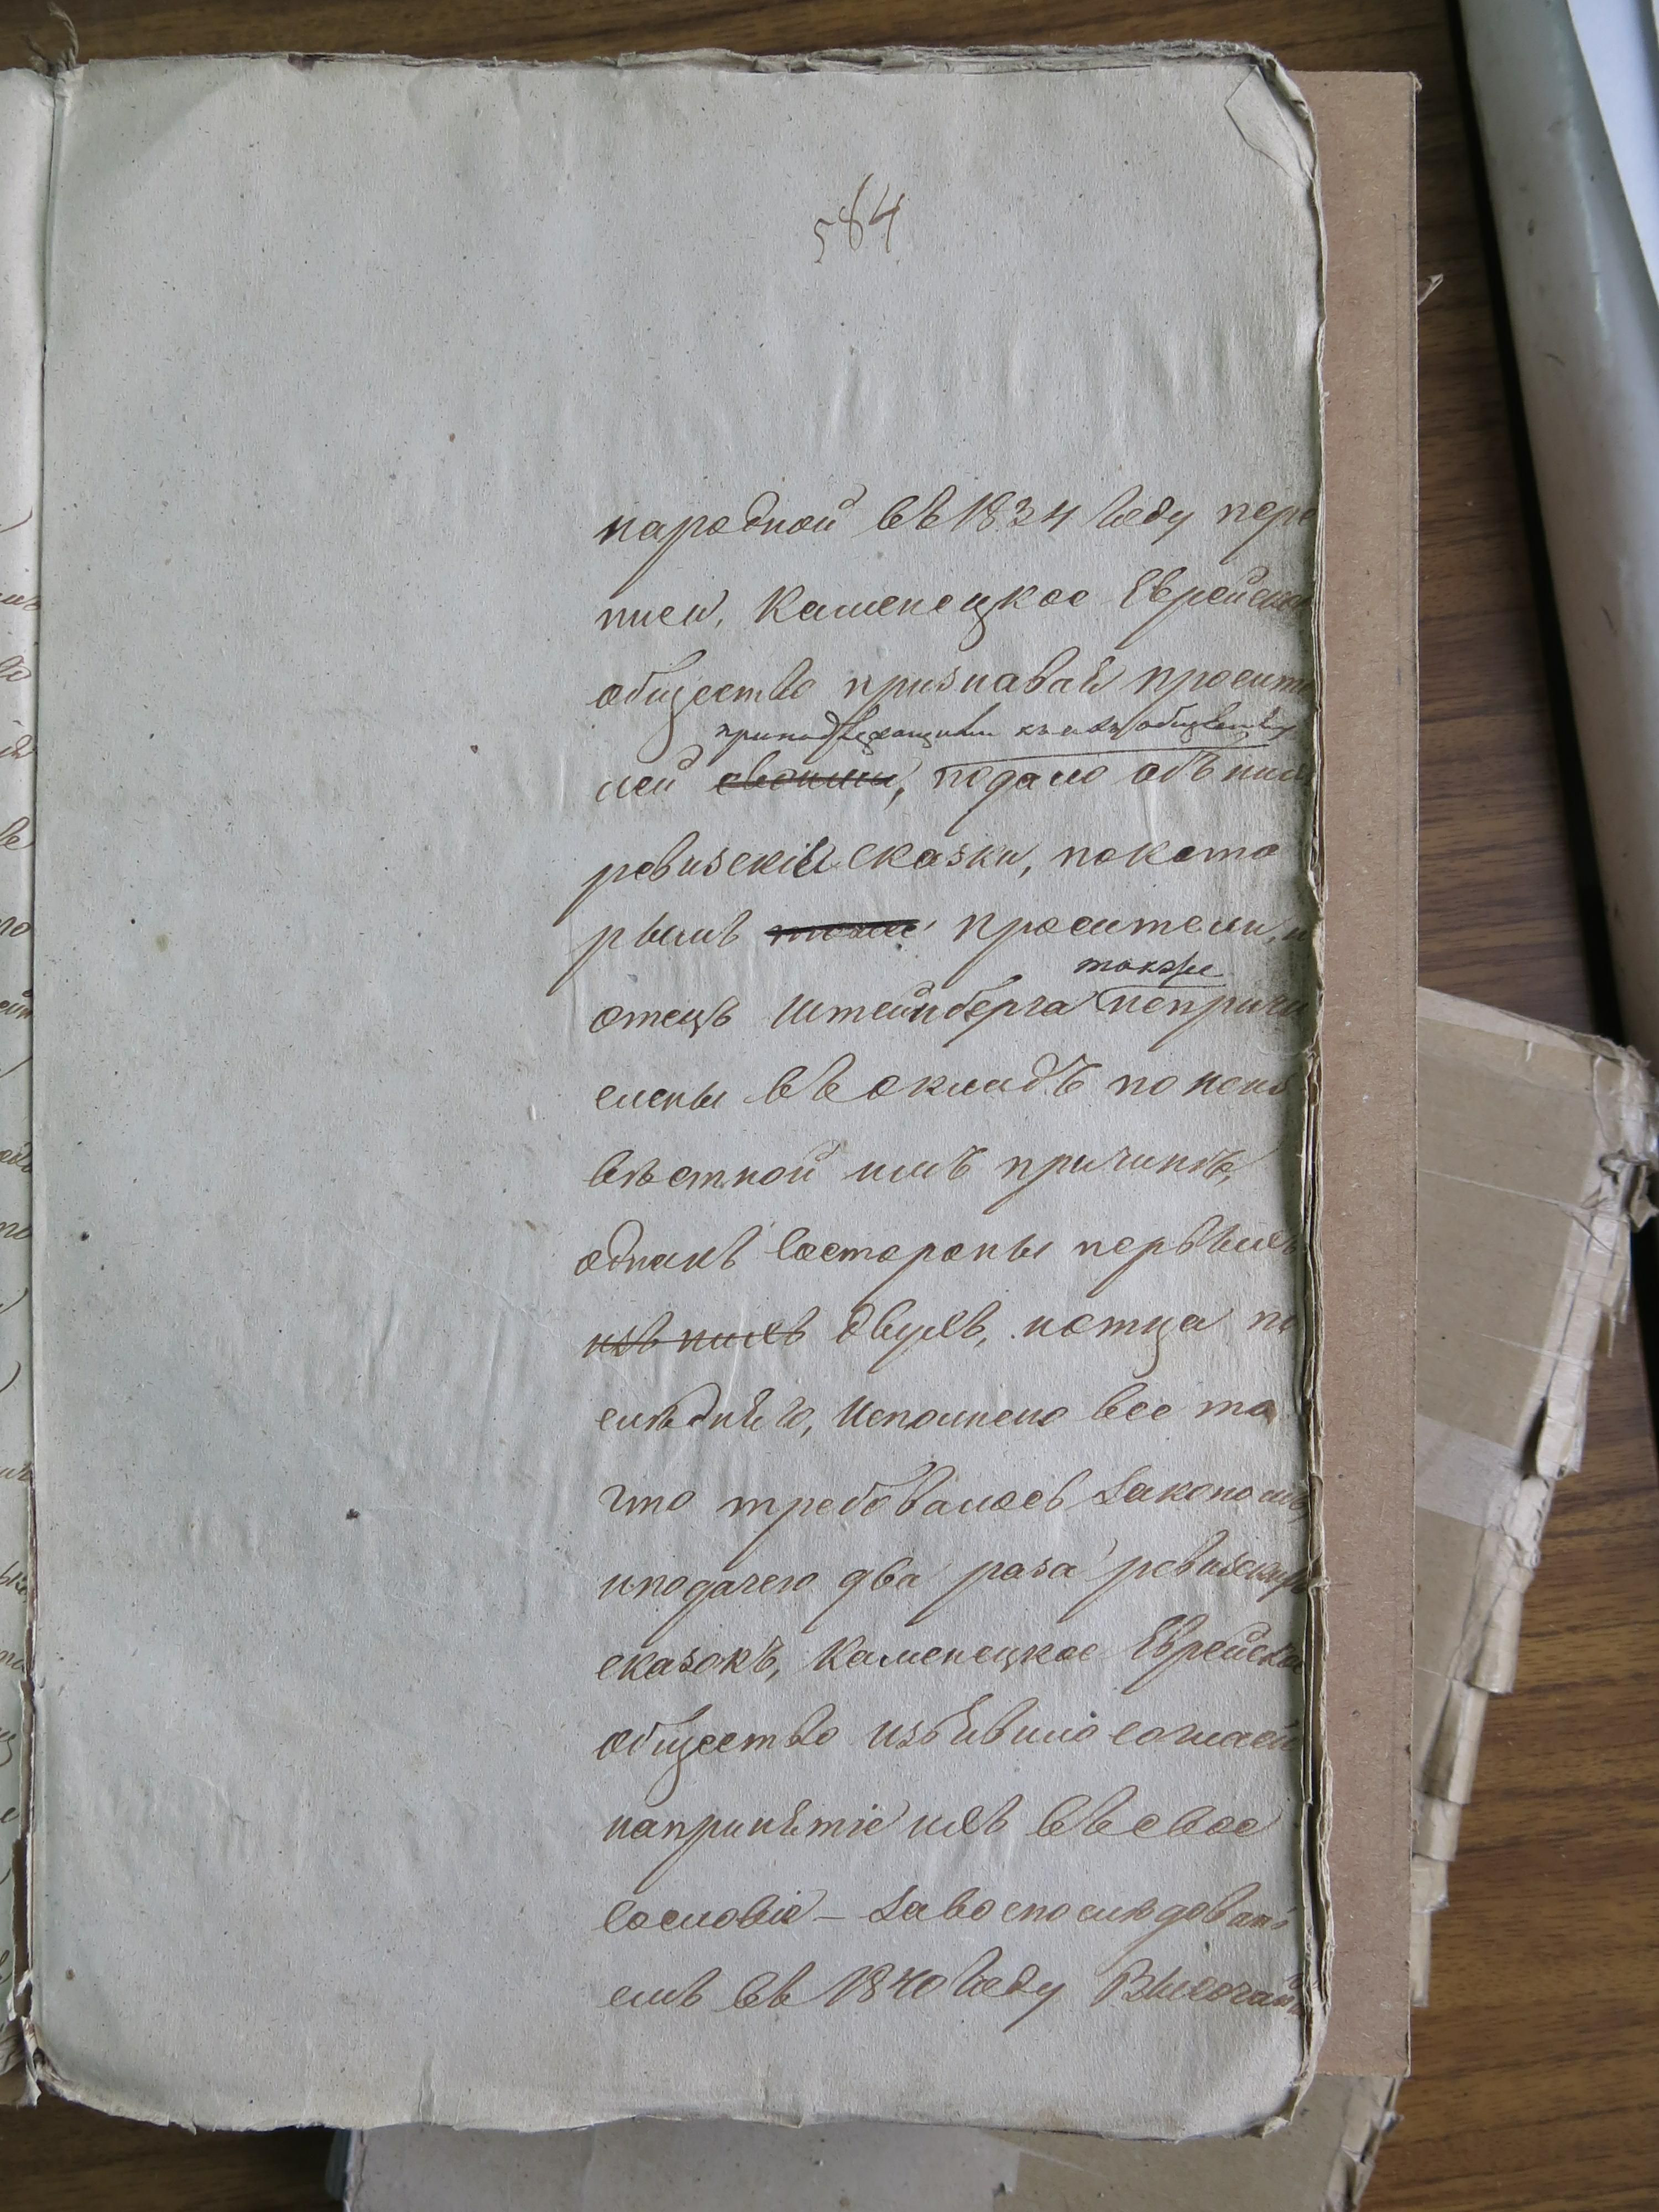 584
народной въ 1834 году пере
писи, Каменецкое Еврейское
общество признавая просите
принадлежащими къ ихъ обществу
лей своими, подало объ нихъ
ревизскія сказки, покото
рымъ просители, и
также
отецъ Штейнберга непричи
слены въ окладъ по неиз
вѣстной имъ причинѣ,
однакъ состороны первыхъ
изъ нихъ двухъ, иотца по
слѣдняго, Исполнено все то
что требовалось Закономъ,
иподачею два раза ревизскихъ
сказокъ, Каменецкое Еврейское
общество изъявило согласіе
напринятіе ихъ въ свое
сословіе – Завоспослѣдовані
емъ въ 1840 году Высочай